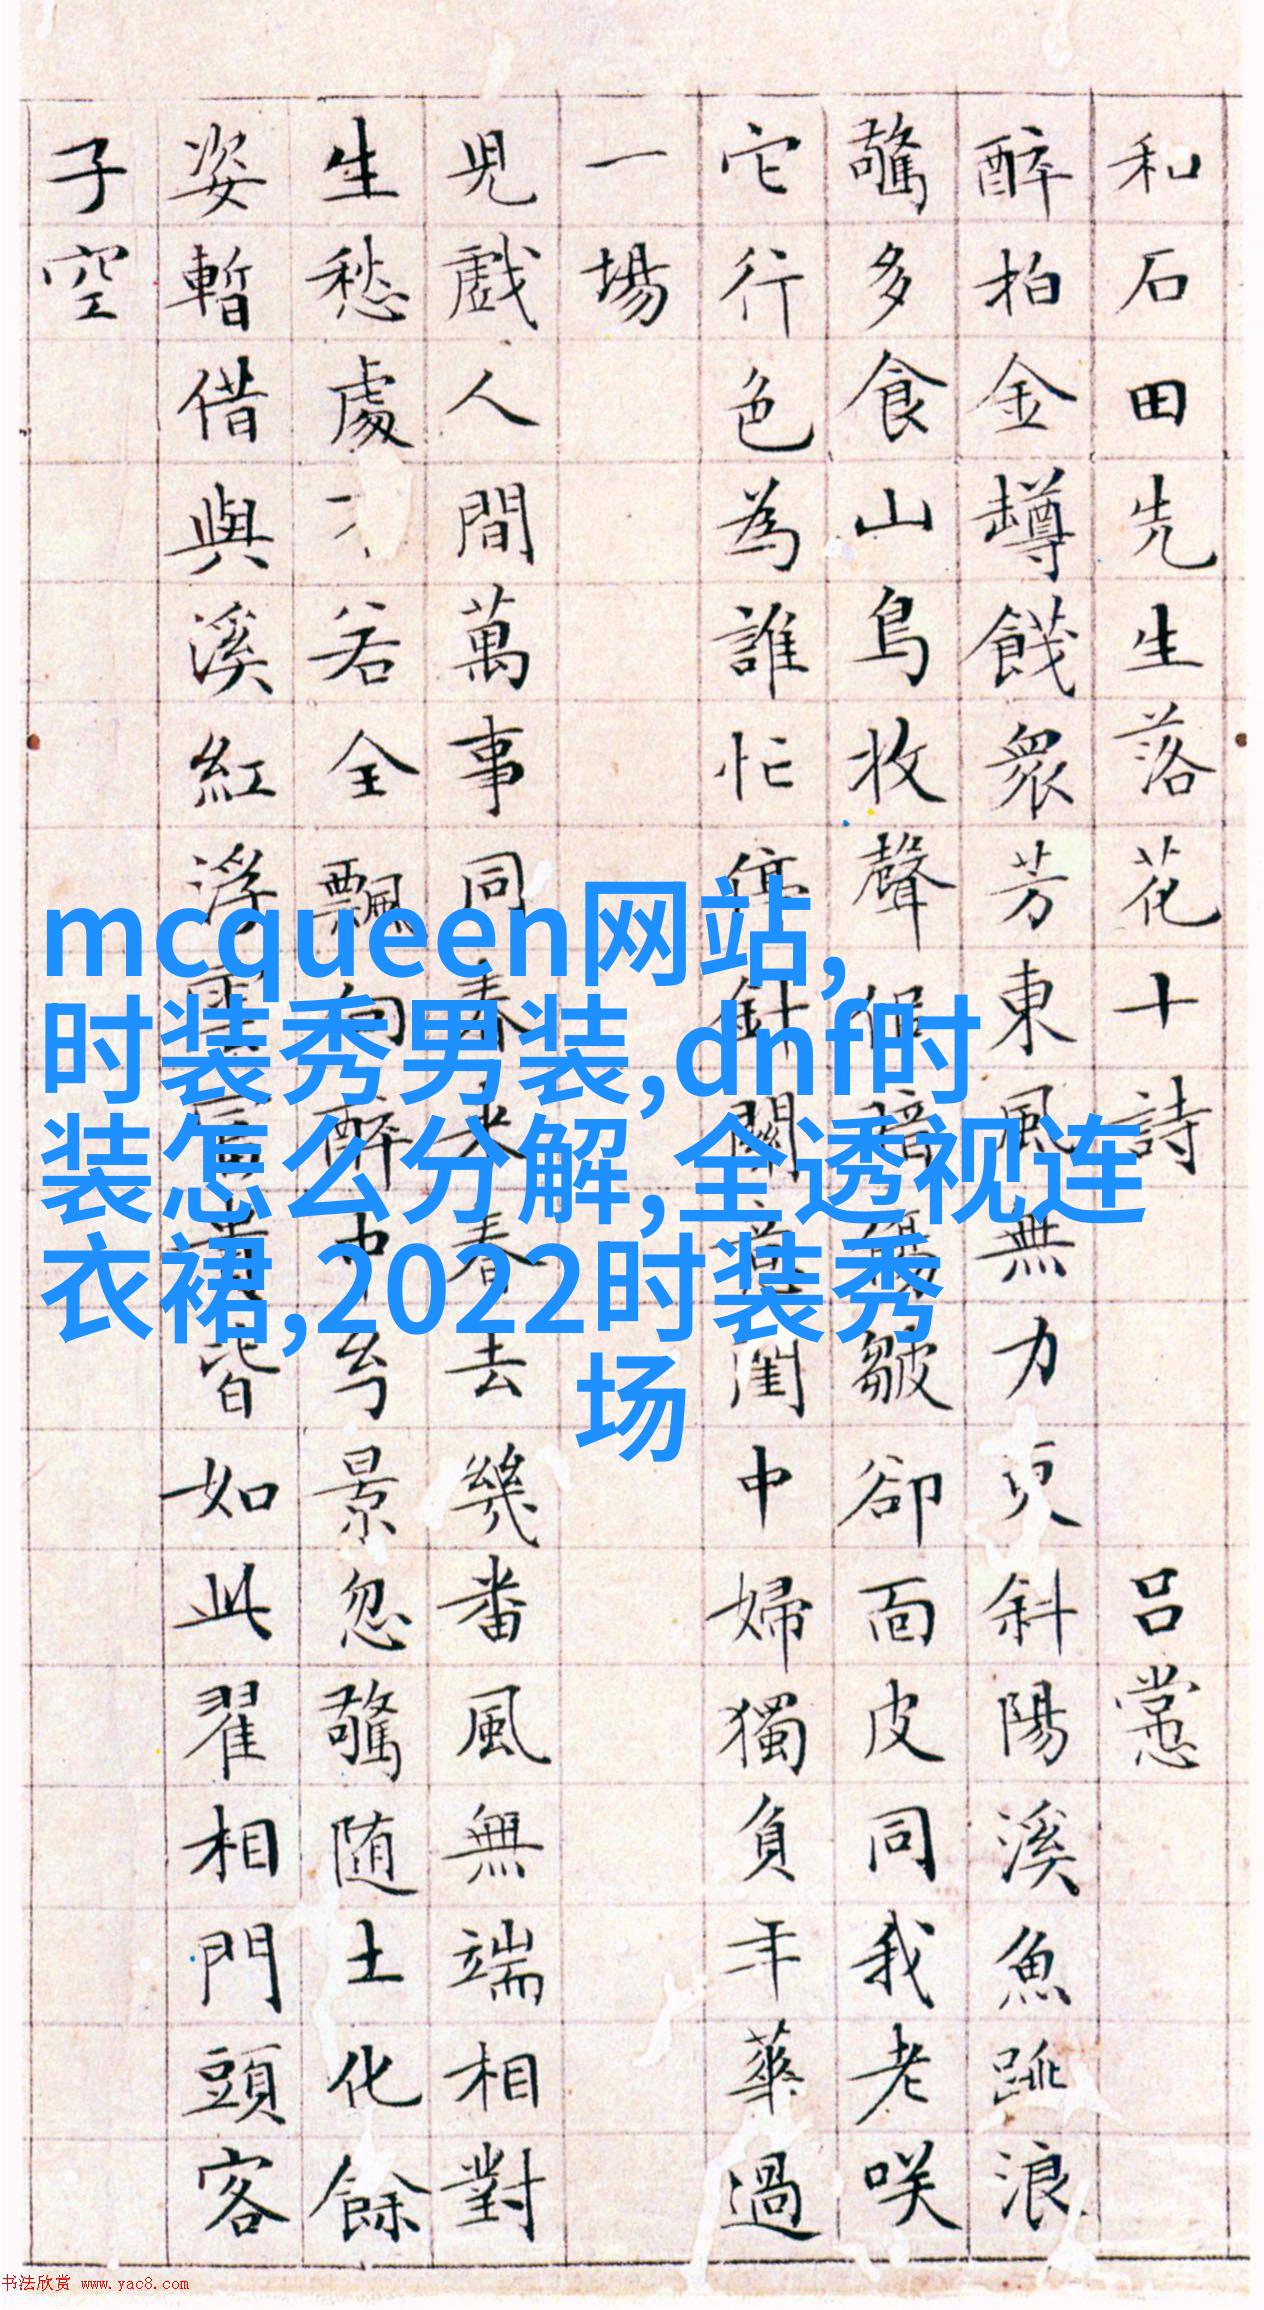 和石田先生落花十詩 呂㦂
醉拍金罇餞衆芳東風無力更斜陽溪魚跳浪
驚多食山鳥收聲傷皺卻面皮同我老咲
它行色為誰忙停針閨中婦獨負年華過
一場
兒戲人間萬事同春來春去幾番風無端相對
生愁處若全飄向醉中景忽驚随土化餘
姿暫借與溪紅浮雲富貴皆如此翟相門頭客
子空
mcqueen网站,
时装秀男装,dnf时
装怎么分解,全透视连
衣裙,2022时装秀
场
书法欣赏 www.yac8.com